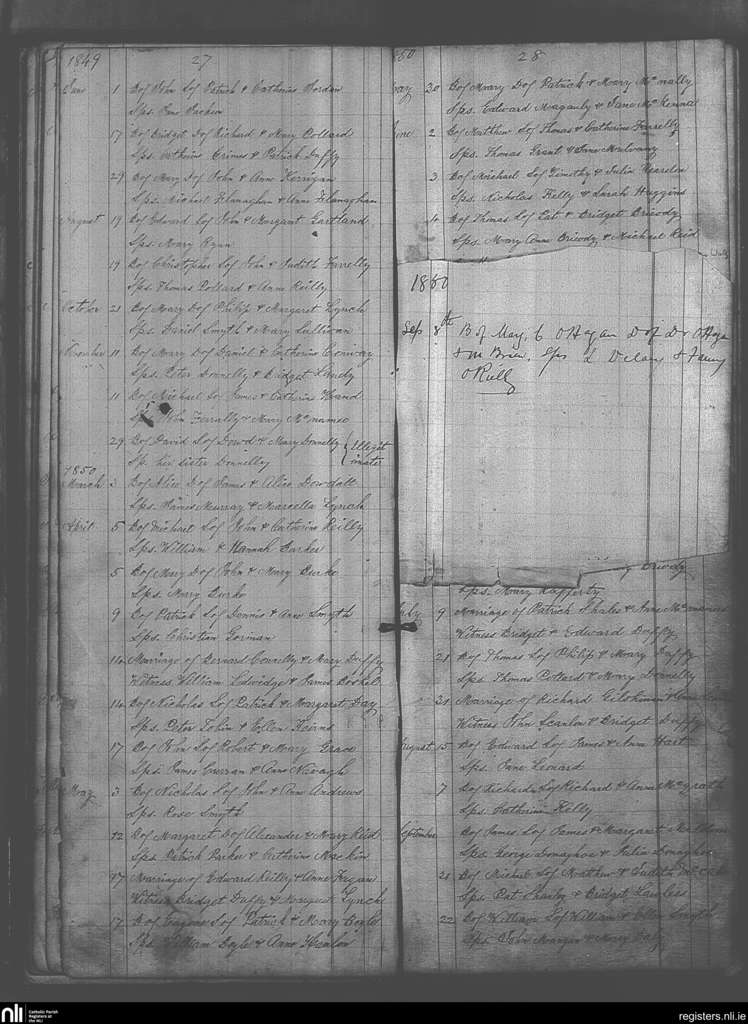 1849 27
June 1 B of John S of Patrick & Catherine Jordan
Sps. Jane
17 B of Bridget D of Richard & Mary Pollard
Sps. Catherine Grimes & Patrick Duffy
29 B of Mary D of John & Anne Kerrigan
Sps. Michael Flanaghan & Anne Flanaghan
August 19 B of Edward S of John & Margaret Gartland
Sps. Mary Ryan
19 B of Christopher S of John & Judith Farrelly
Sps. Thomas Pollard & Anne Reilly
October 21 B of Mary D of Philip & Margaret Lynch
Sps. David Smyth & Mary Sullivan
November 11 B of Mary D of Daniel & Catherine Conway
Sps. Peter Donnelly & Bridget
11 B of Michael S of James & Catherine Hand
Sps. John Farrelly & Mary McNamee
29 B of David S of Dowd & Mary Donnelly { Illegit
Sp. her sister Donnelly imate
1850
March 3 B of Alice D of James & Alice Dowdall
Sps. James Murray & Marcella Lynch
April 5 B of Michael S of John & Catherine Reilly
Sps. William & Hannah Parker
5 B of Mary D of John & Mary Burke
Sps. Mary Burke
9 B of Patrick S of Dennis & Anne Smyth
Sps. Christian Gorman
14 Marriage of Bernard Connelly & Mary Duffy
Witness William & James
14 B of Nicholas S of Patrick & Margaret Day
Sps. Peter Tobin & Ellen
17 B of John S of Robert & Mary Grace
Sps. James Curran & Anne
May 3 B of Nicholas S of John & Ann Andrews
Sps. Rose Smyth
12 B of Margaret D of Alexander & Mary Reid
Sps. Patrick Parker & Catherine Mackin
17 Marriage of Edward Reilly & Anne Fagan
Witness Bridget Duffy & Margaret Lynch
17 B of Eugene S of Patrick & Mary Boyle
Sps. William Boyle & Anne Hanlon
28
30 B of Mary D of Patrick & Mary McNally
Sps. Edward Maganly & Jane McKenna
June 2 B of Matthew S of Thomas & Catherine Farrelly
Sps. Thomas Grant & Jane Mulvany
3 B of Michael S of Timothy & Julia Reardon
Sps. Nicholas Kelly & Sarah Huggins
4 B of Thomas S of Pat & Bridget Briody
Sps. Mary Anne Briody & Michael Reid
1850
Sep 8th B of May, C O'Hagan D of Dr O'Haga
& M Brien. Sps L Delany & Fanny
O'Reilly
Briody
Sps. Mary Rafferty
July 9 Marriage of Patrick & Anne McNamara
Witness Bridget & Edward Duffy
21 B of Thomas S of Philip & Mary Duffy
Sps. Thomas Pollard & Mary Donnelly
Marriage of Richard
Witness John Scanlon & Bridget Duffy
August 5 B of Edward S of James & Ann Hart
Sps. Jane Leonard
7 B of Richard S of Richard & Anne McGrath
Sps. Catherine Kelly
September B of James S of James & Margaret
Sps. George Donaghoe & Julia Donaghoe
21 B of Michael S of Matthew & Judith
Sps. Pat & Bridget Lawless
22 B of William S of William & Ellen Smyth
Sps. John Mangan & Mary Daly
nli Catholic Parish
Registers at
the NLI
registers.nli.ie